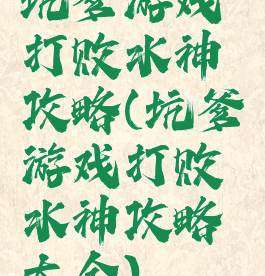 坑爹游戏
打败水神
攻略(坑爹
游戏打败
水神攻略
大全)